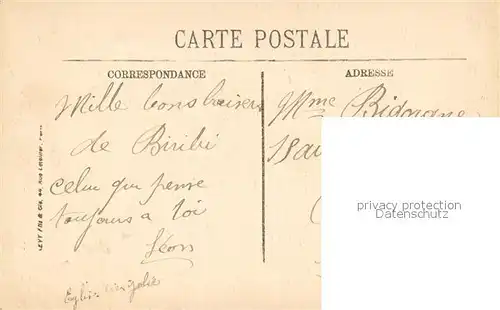 CARTE POSTALE
CORRESPONDANCE
ADRESSE
Mille bons baisers
de Biribi
celui qui pense
toujours a toi
Léon
Eglise jolie
Mme
LEVY FILS & Cie, 44, Rue Letellier, Paris
privacy protection
Datenschutz